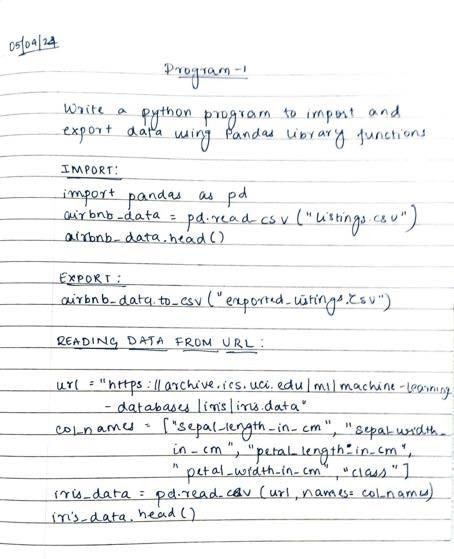 05/04/24
Program-1
Write a python program to import and
export data using Pandas library functions
IMPORT:
import pandas as pd
airbnb_data = pd.read_csv("listings.csv")
airbnb_data.head()
EXPORT:
airbnb_data.to_csv("exported_listings.csv")
READING DATA FROM URL:
url = "https://archive.ics.uci.edu/ml/machine-learning
- databases/iris/iris.data"
col_names = ["sepal_length_in_cm", "sepal_width_
in_cm", "petal_length_in_cm",
"petal_width_in_cm", "class"]
iris_data = pd.read_csv(url, names= col_names)
iris_data.head()